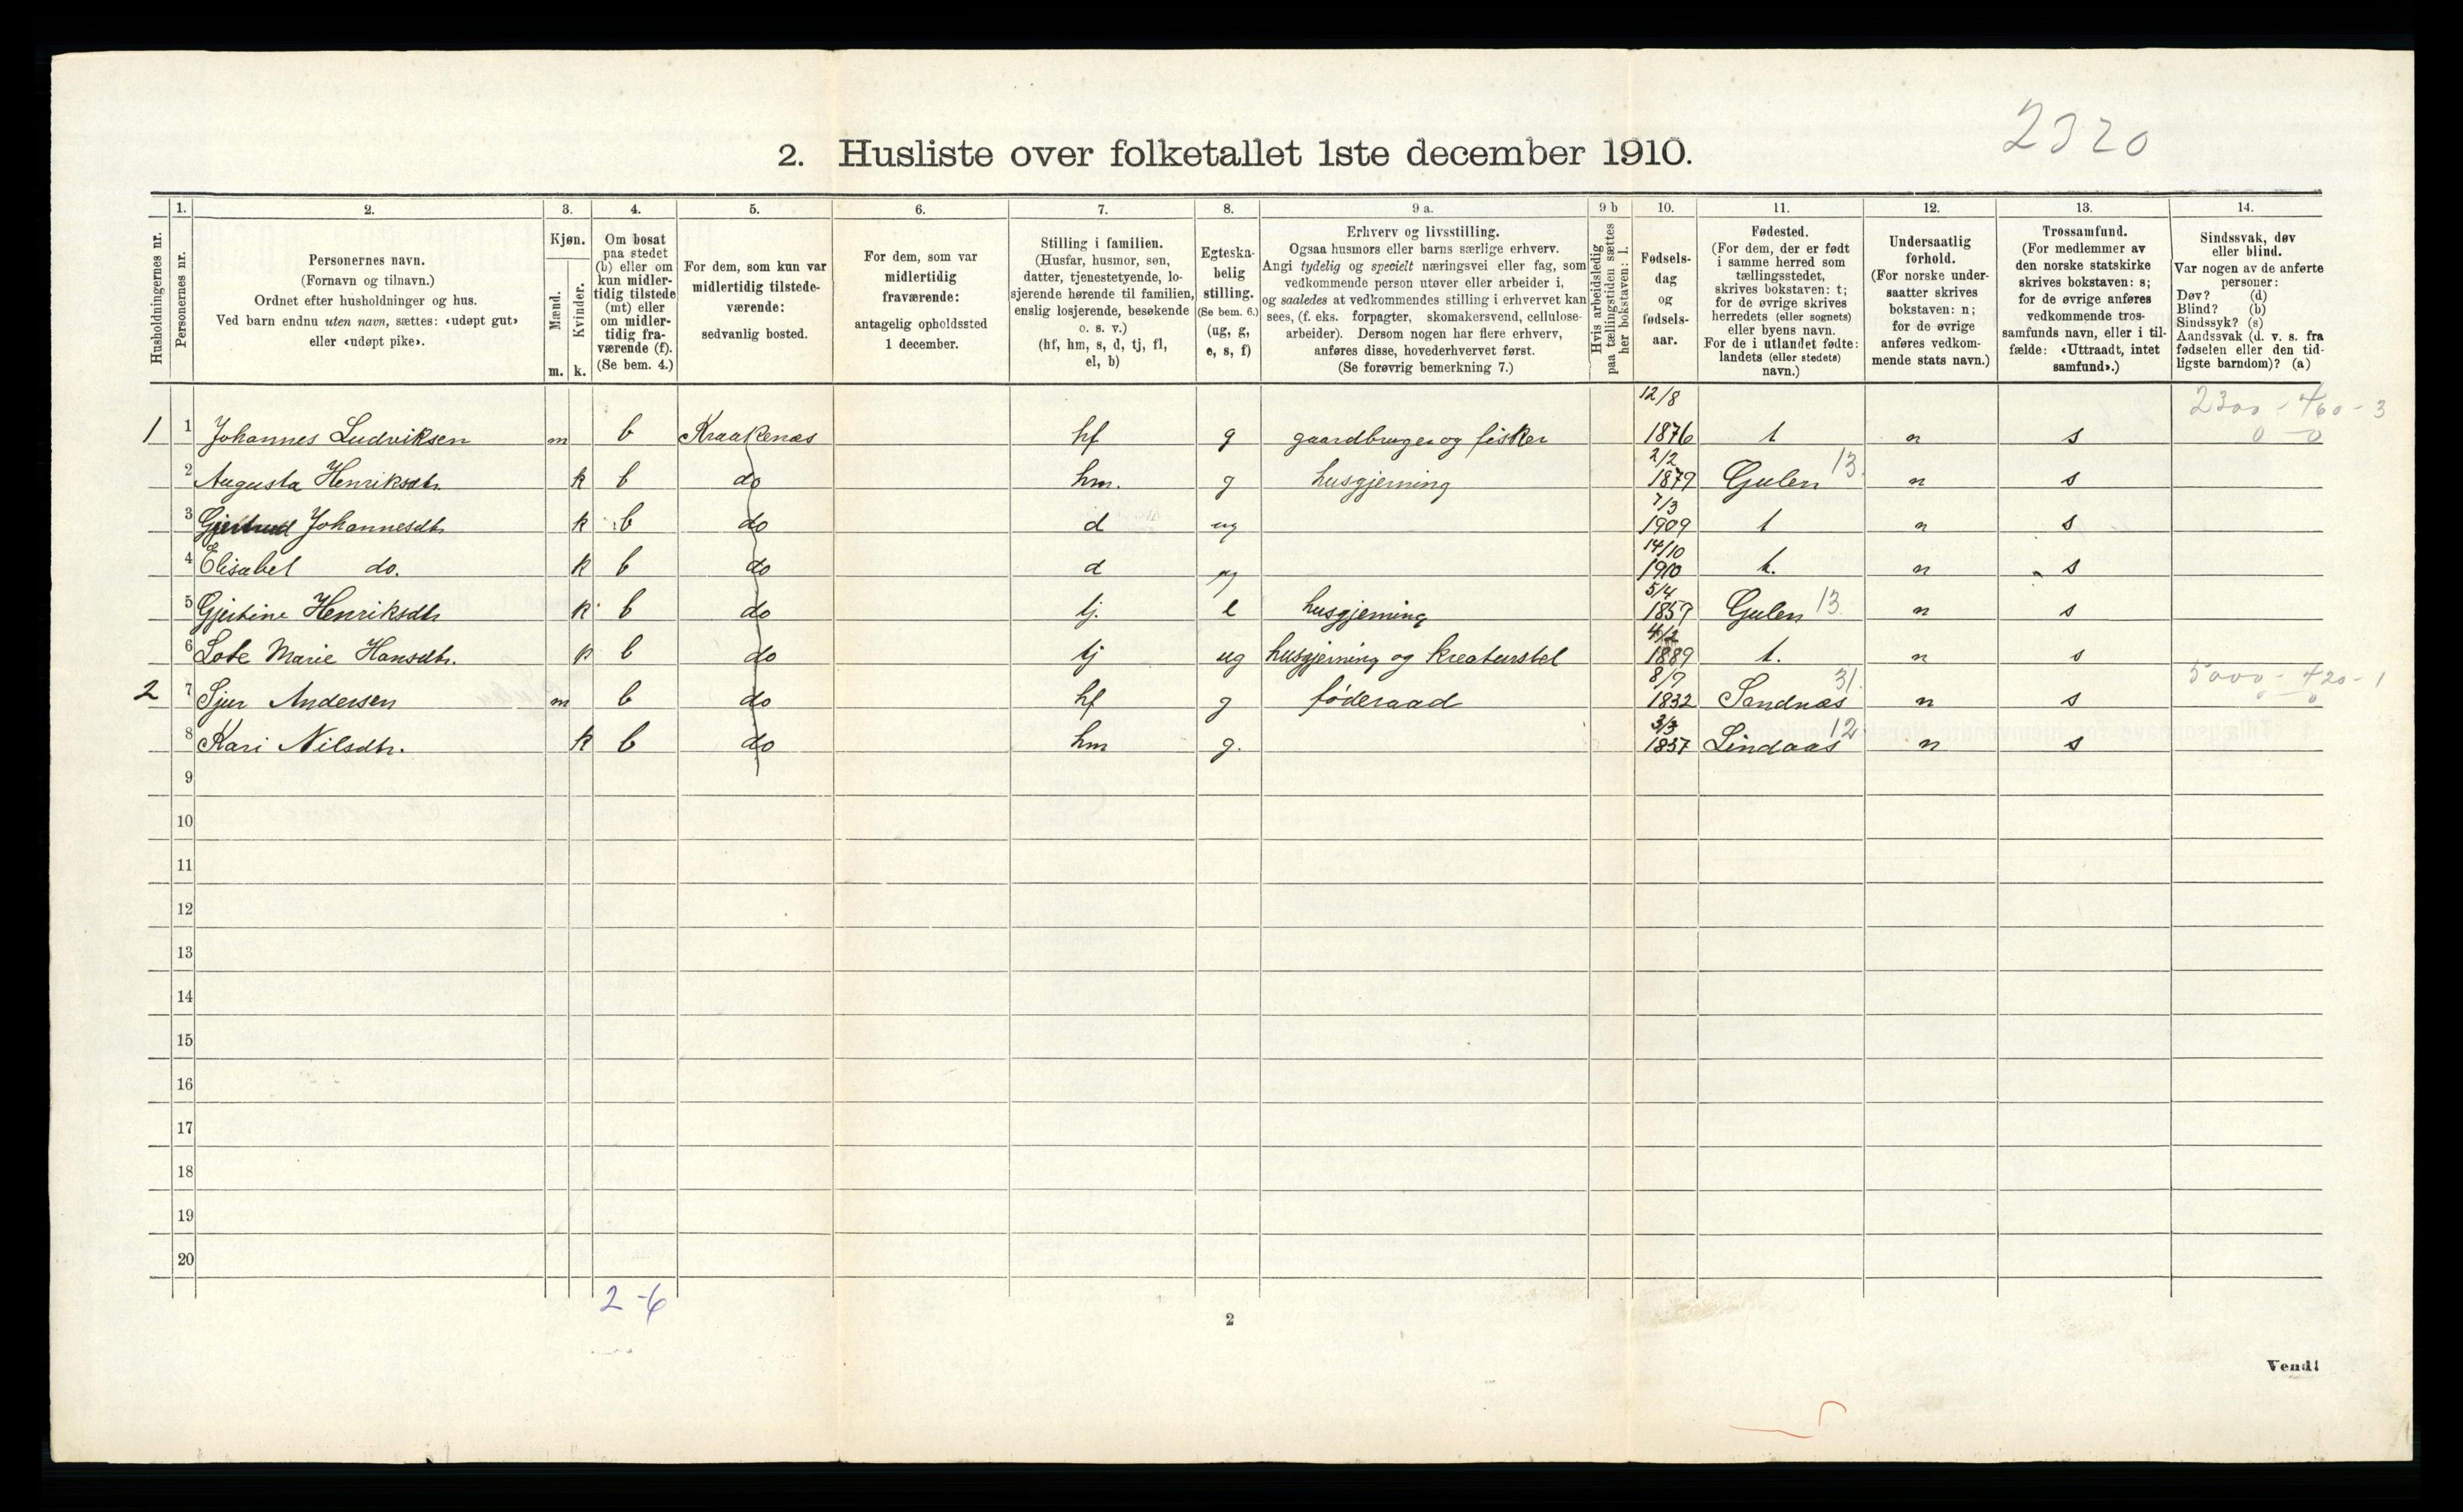 2320
2. Husliste over folketallet 1ste december 1910.
Husholdningernes nr.
1. Personernes nr.
2. Personernes navn.
(Fornavn og tilnavn.)
Ordnet efter husholdninger og hus.
Ved barn endnu uten navn, sættes: «udøpt gut»
eller «udøpt pike».
3. Kjøn.
Mænd.
Kvinder.
m. k.
4. Om bosat
paa stedet
(b) eller om
kun midler-
tidig tilstede
(mt) eller
om midler-
tidig fra-
værende (f).
(Se bem. 4.)
5. For dem, som kun var
midlertidig tilstede-
værende:
sedvanlig bosted.
6. For dem, som var
midlertidig
fraværende:
antagelig opholdssted
1 december.
7. Stilling i familien.
(Husfar, husmor, søn,
datter, tjenestetyende, lo-
sjerende hørende til familien,
enslig losjerende, besøkende
o. s. v.)
(hf, hm, s, d, tj, fl,
el, b)
8. Egteska-
belig
stilling.
(Se bem. 6.)
(ug, g,
e, s, f)
9 a. Erhverv og livsstilling.
Ogsaa husmors eller barns særlige erhverv.
Angi tydelig og specielt næringsvei eller fag, som
vedkommende person utøver eller arbeider i,
og saaledes at vedkommendes stilling i erhvervet kan
sees, (f. eks. forpagter, skomakersvend, cellulose-
arbeider). Dersom nogen har flere erhverv,
anføres disse, hovederhvervet først.
(Se forøvrig bemerkning 7.)
9 b Hvis arbeidsledig
paa tællingstiden sættes
her bokstaven: l.
10. Fødsels-
dag
og
fødsels-
aar.
11. Fødested.
(For dem, der er født
i samme herred som
tællingsstedet,
skrives bokstaven: t;
for de øvrige skrives
herredets (eller sognets)
eller byens navn.
For de i utlandet fødte:
landets (eller stedets)
navn.)
12. Undersaatlig
forhold.
(For norske under-
saatter skrives
bokstaven: n;
for de øvrige
anføres vedkom-
mende stats navn.)
13. Trossamfund.
(For medlemmer av
den norske statskirke
skrives bokstaven: s;
for de øvrige anføres
vedkommende tros-
samfunds navn, eller i til-
fælde: «Uttraadt, intet
samfund».)
14. Sindssvak, døv
eller blind.
Var nogen av de anførte
personer:
Døv? (d)
Blind? (b)
Sindssyk? (s)
Aandssvak (d. v. s. fra
fødselen eller den tid-
ligste barndom)? (a)
12/8 2300 - 460 - 3
1 1 Johannes Ludviksen m b Kraakenæs hf g gaardbruger og fisker 1876 t n s 0 - 0
2/2 13
2 Augusta Henriksdtr. k b do hm. g husgjerning 1879 Gulen n s
7/3
3 Gjertrud Johannesdtr k b do d ug 1909 t n s
14/10
4 Elisabet do. k b do d ug 1910 t. n s
5/4
5 Gjertine Henriksdtr k b do tj. e husgjerning 1859 Gulen 13 n s
4/2
6 Lote Marie Hansdtr. k b do tj ug husgjerning og kreaturstel 1889 t. n s
8/9 31. 5000 - 420 - 1
2 7 Sjur Andersen m b do hf g føderaad 1832 Sandnæs n s 0
3/3 12
8 Kari Nilsdtr. k b do hm g. 1837 Lindaas n s
9
10
11
12
13
14
15
16
17
18
19
20
2-6
2
Vend!